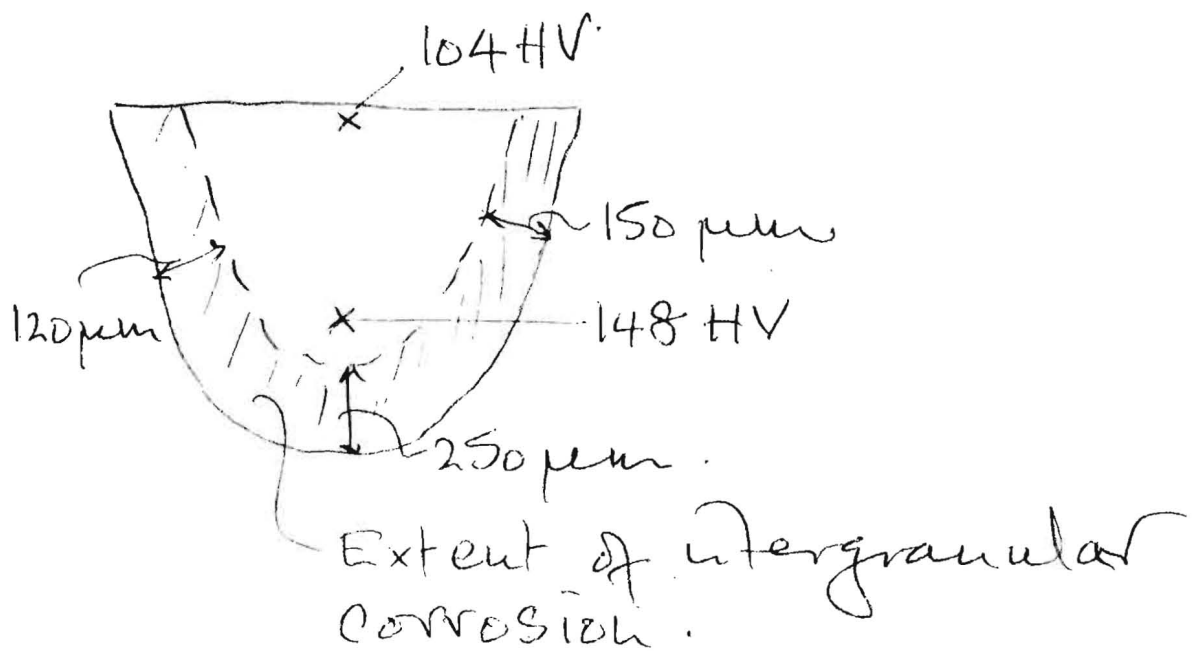 104 HV
150 µm
120 µm
148 HV
250 µm.
Extent of intergranular
corrosion.